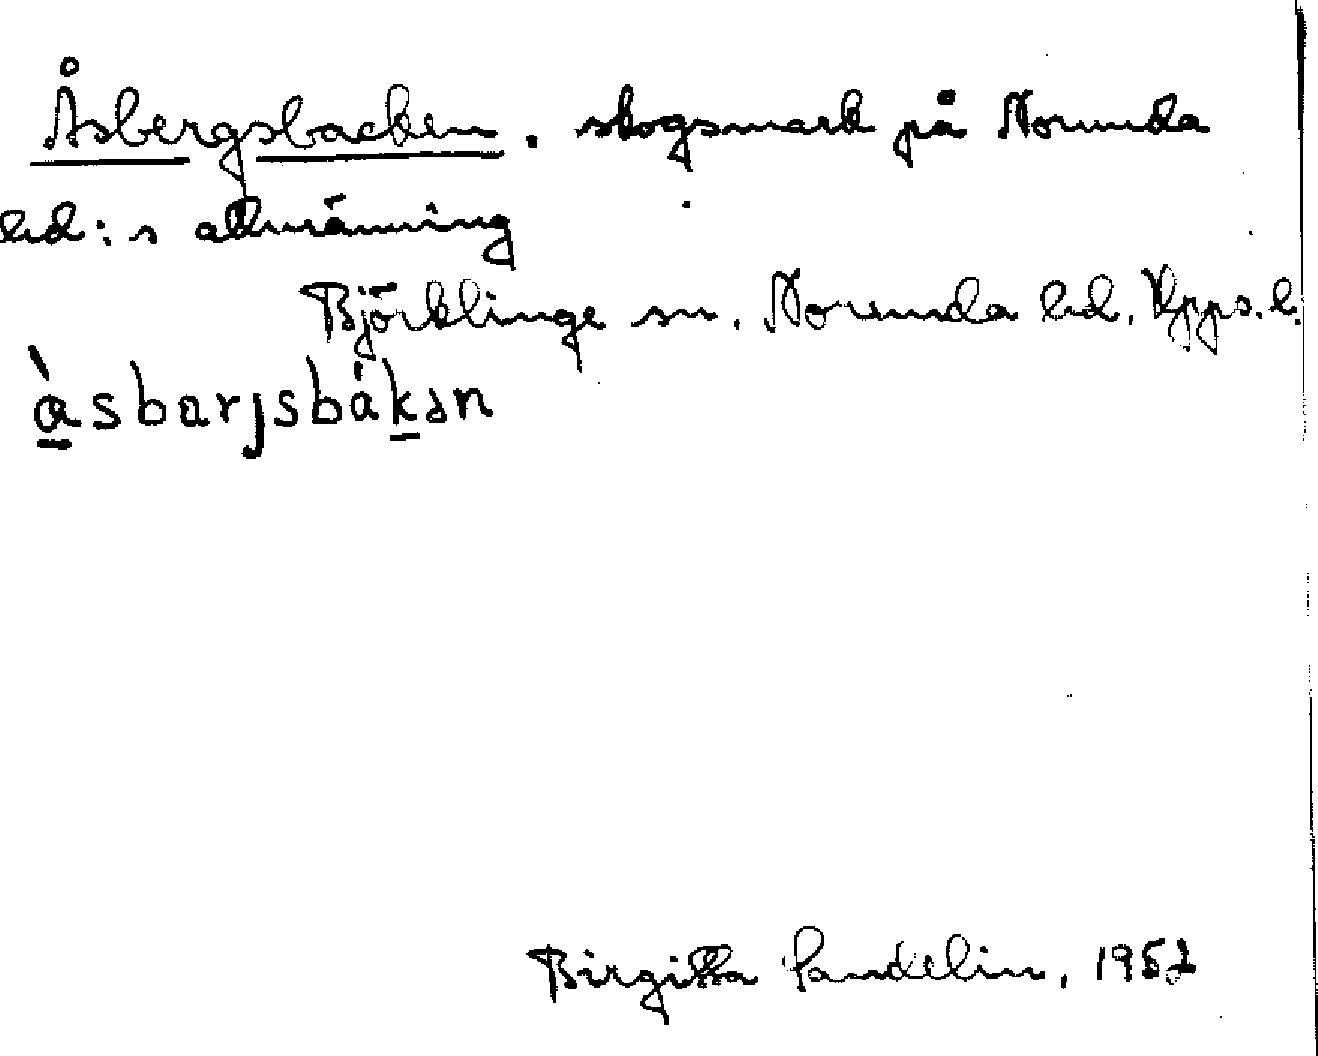 Åsbergsbacken. skogsmark på Norunda
hd:s allmänning
Björklinge sn. Norunda hd. Upps. l.
å̀sbarjsbákən
Birgitta Sandelin, 1951